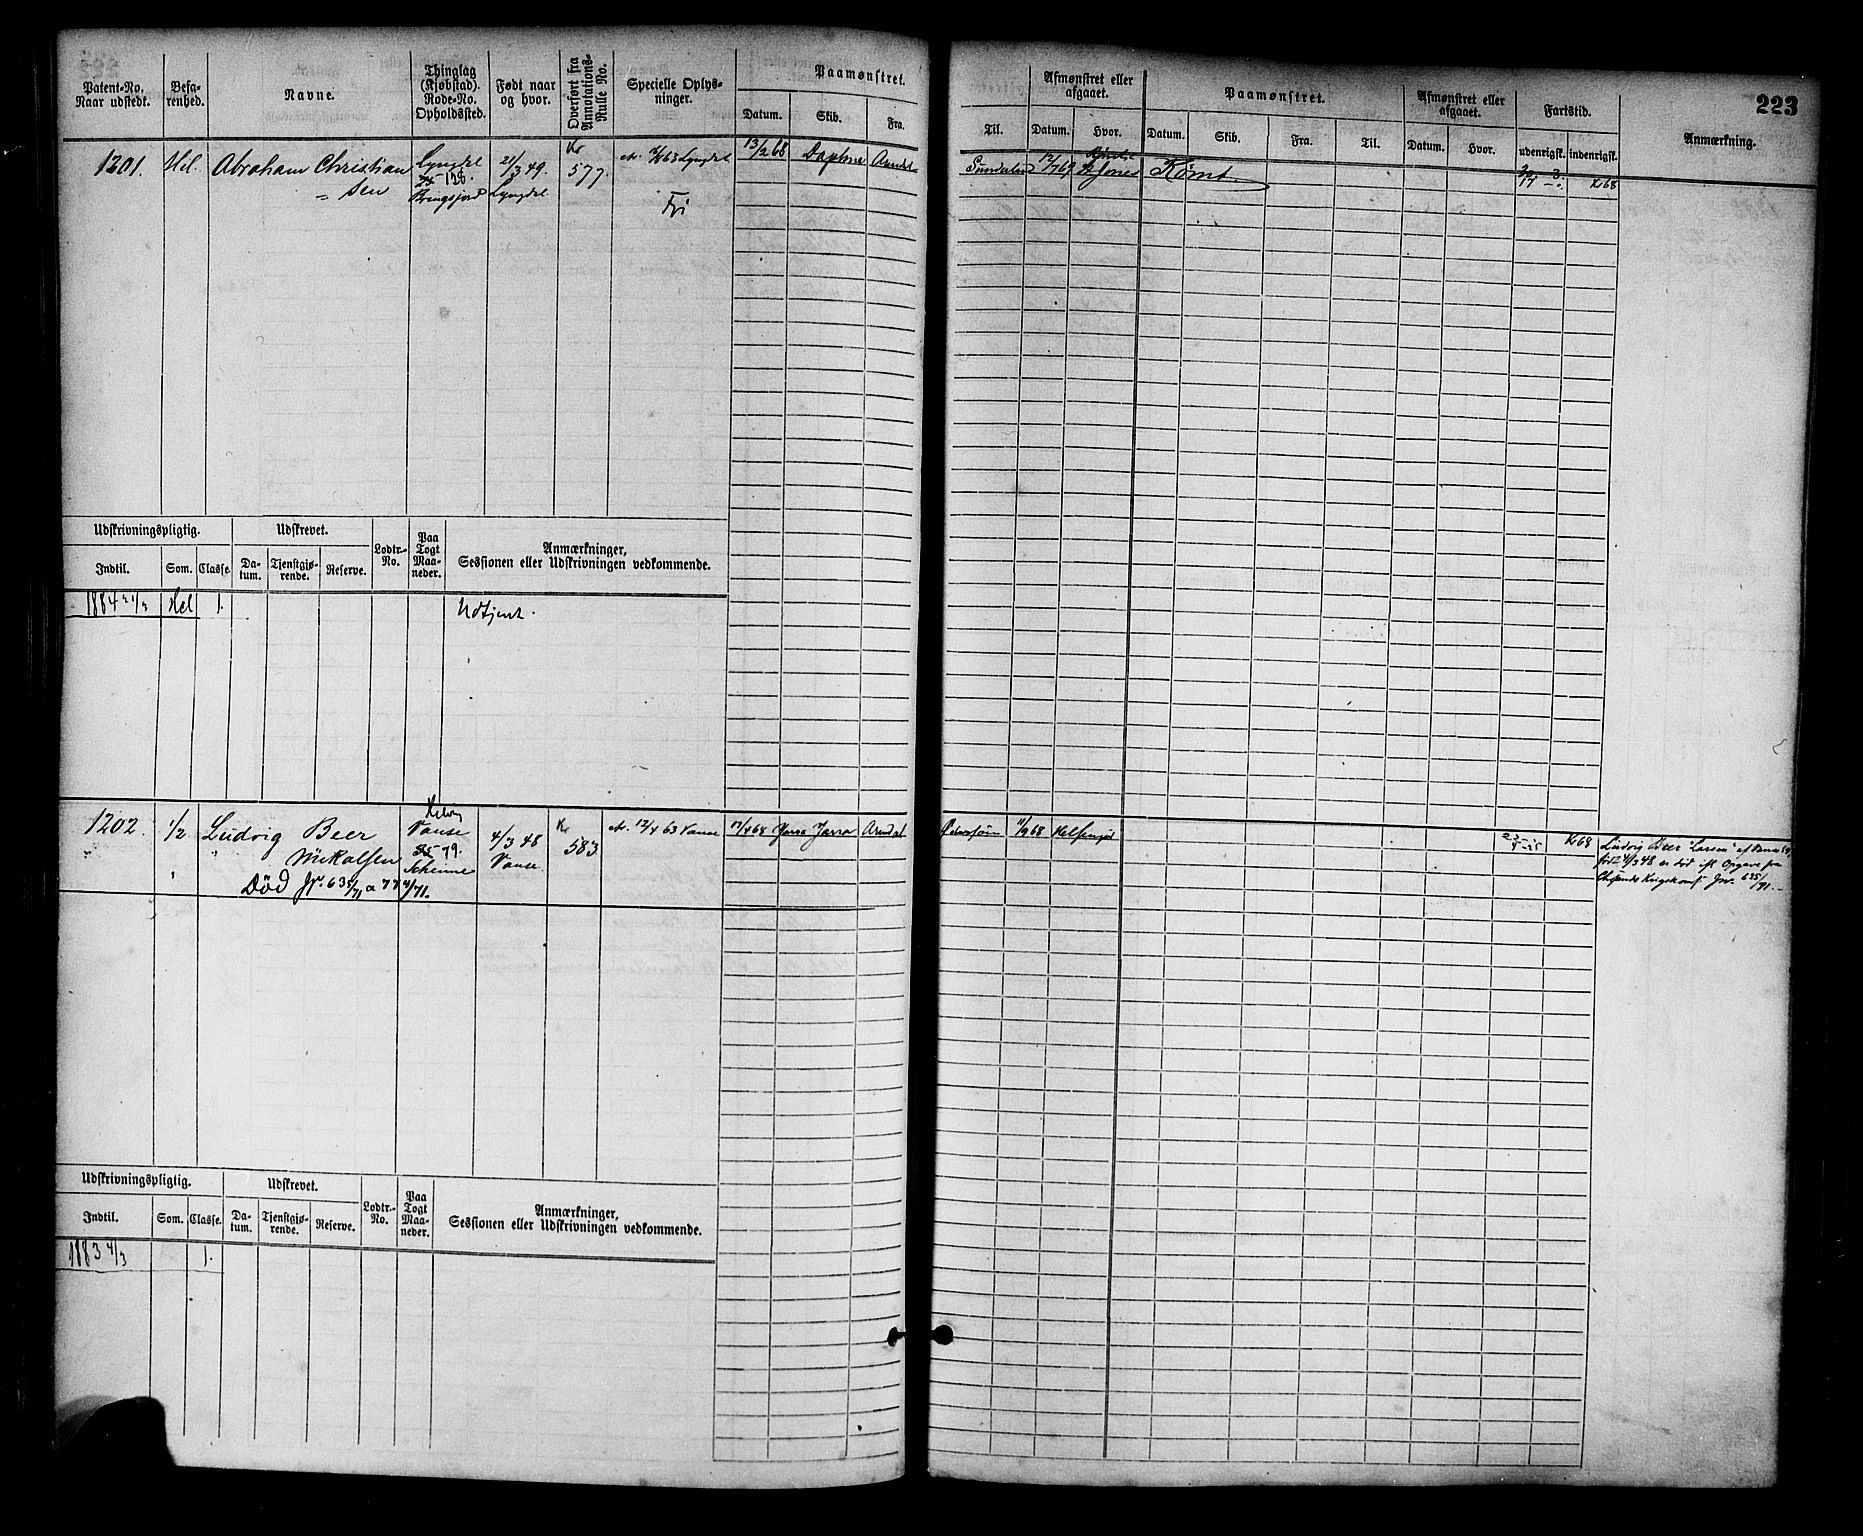 223
Patent-No. Naar udstedt.
Befarenhed.
Navne.
Thinglag (Kjøbstad). Rode-No. Opholdssted.
Født naar og hvor.
Overført fra Annotations-Rulle No.
Specielle Oplysninger.
Paamønstret.
Datum. Skib. Fra.
Til.
Afmønstret eller afgaaet.
Datum. Hvor.
Paamønstret.
Datum. Skib. Fra. Til.
Afmønstret eller afgaaet.
Datum. Hvor.
Fartstid.
udenrigsk. indenrigsk.
Anmærkning.
1201. Hel. Abraham Christian
= sen
Lyngdal
128.
21/3 49.
Lyngdal
577
Lyngdal
Fri
13/2 68 Daphne Arendal
Sunderland
K68
Udskrivningspligtig. Udskrevet. Lodtr.-No. Paa Togt Maaneder.
Anmærkninger, Sessionen eller Udskrivningen vedkommende.
Indtil. Som. Classe. Datum. Tjenstgjørende. Reserve.
1884 21/3 Hel 1. Udtjent.
1202. 1/2 Ludvig Beer
Mikalsen
Død Jr. 635/71 a 77 4/71.
Vanse
79.
4/3 48
Vanse
583
12/4 63 Vanse
17/4 68 Arendal
11/9 68 Helsingør
K68
Ludvig Beer "Larsen" af Vanse
født 4/3 48 er død ifl. Opgave fra
Jr. 635/71.
Udskrivningspligtig. Udskrevet. Lodtr.-No. Paa Togt Maaneder.
Anmærkninger, Sessionen eller Udskrivningen vedkommende.
Indtil. Som. Classe. Datum. Tjenstgjørende. Reserve.
1883 4/3 1.